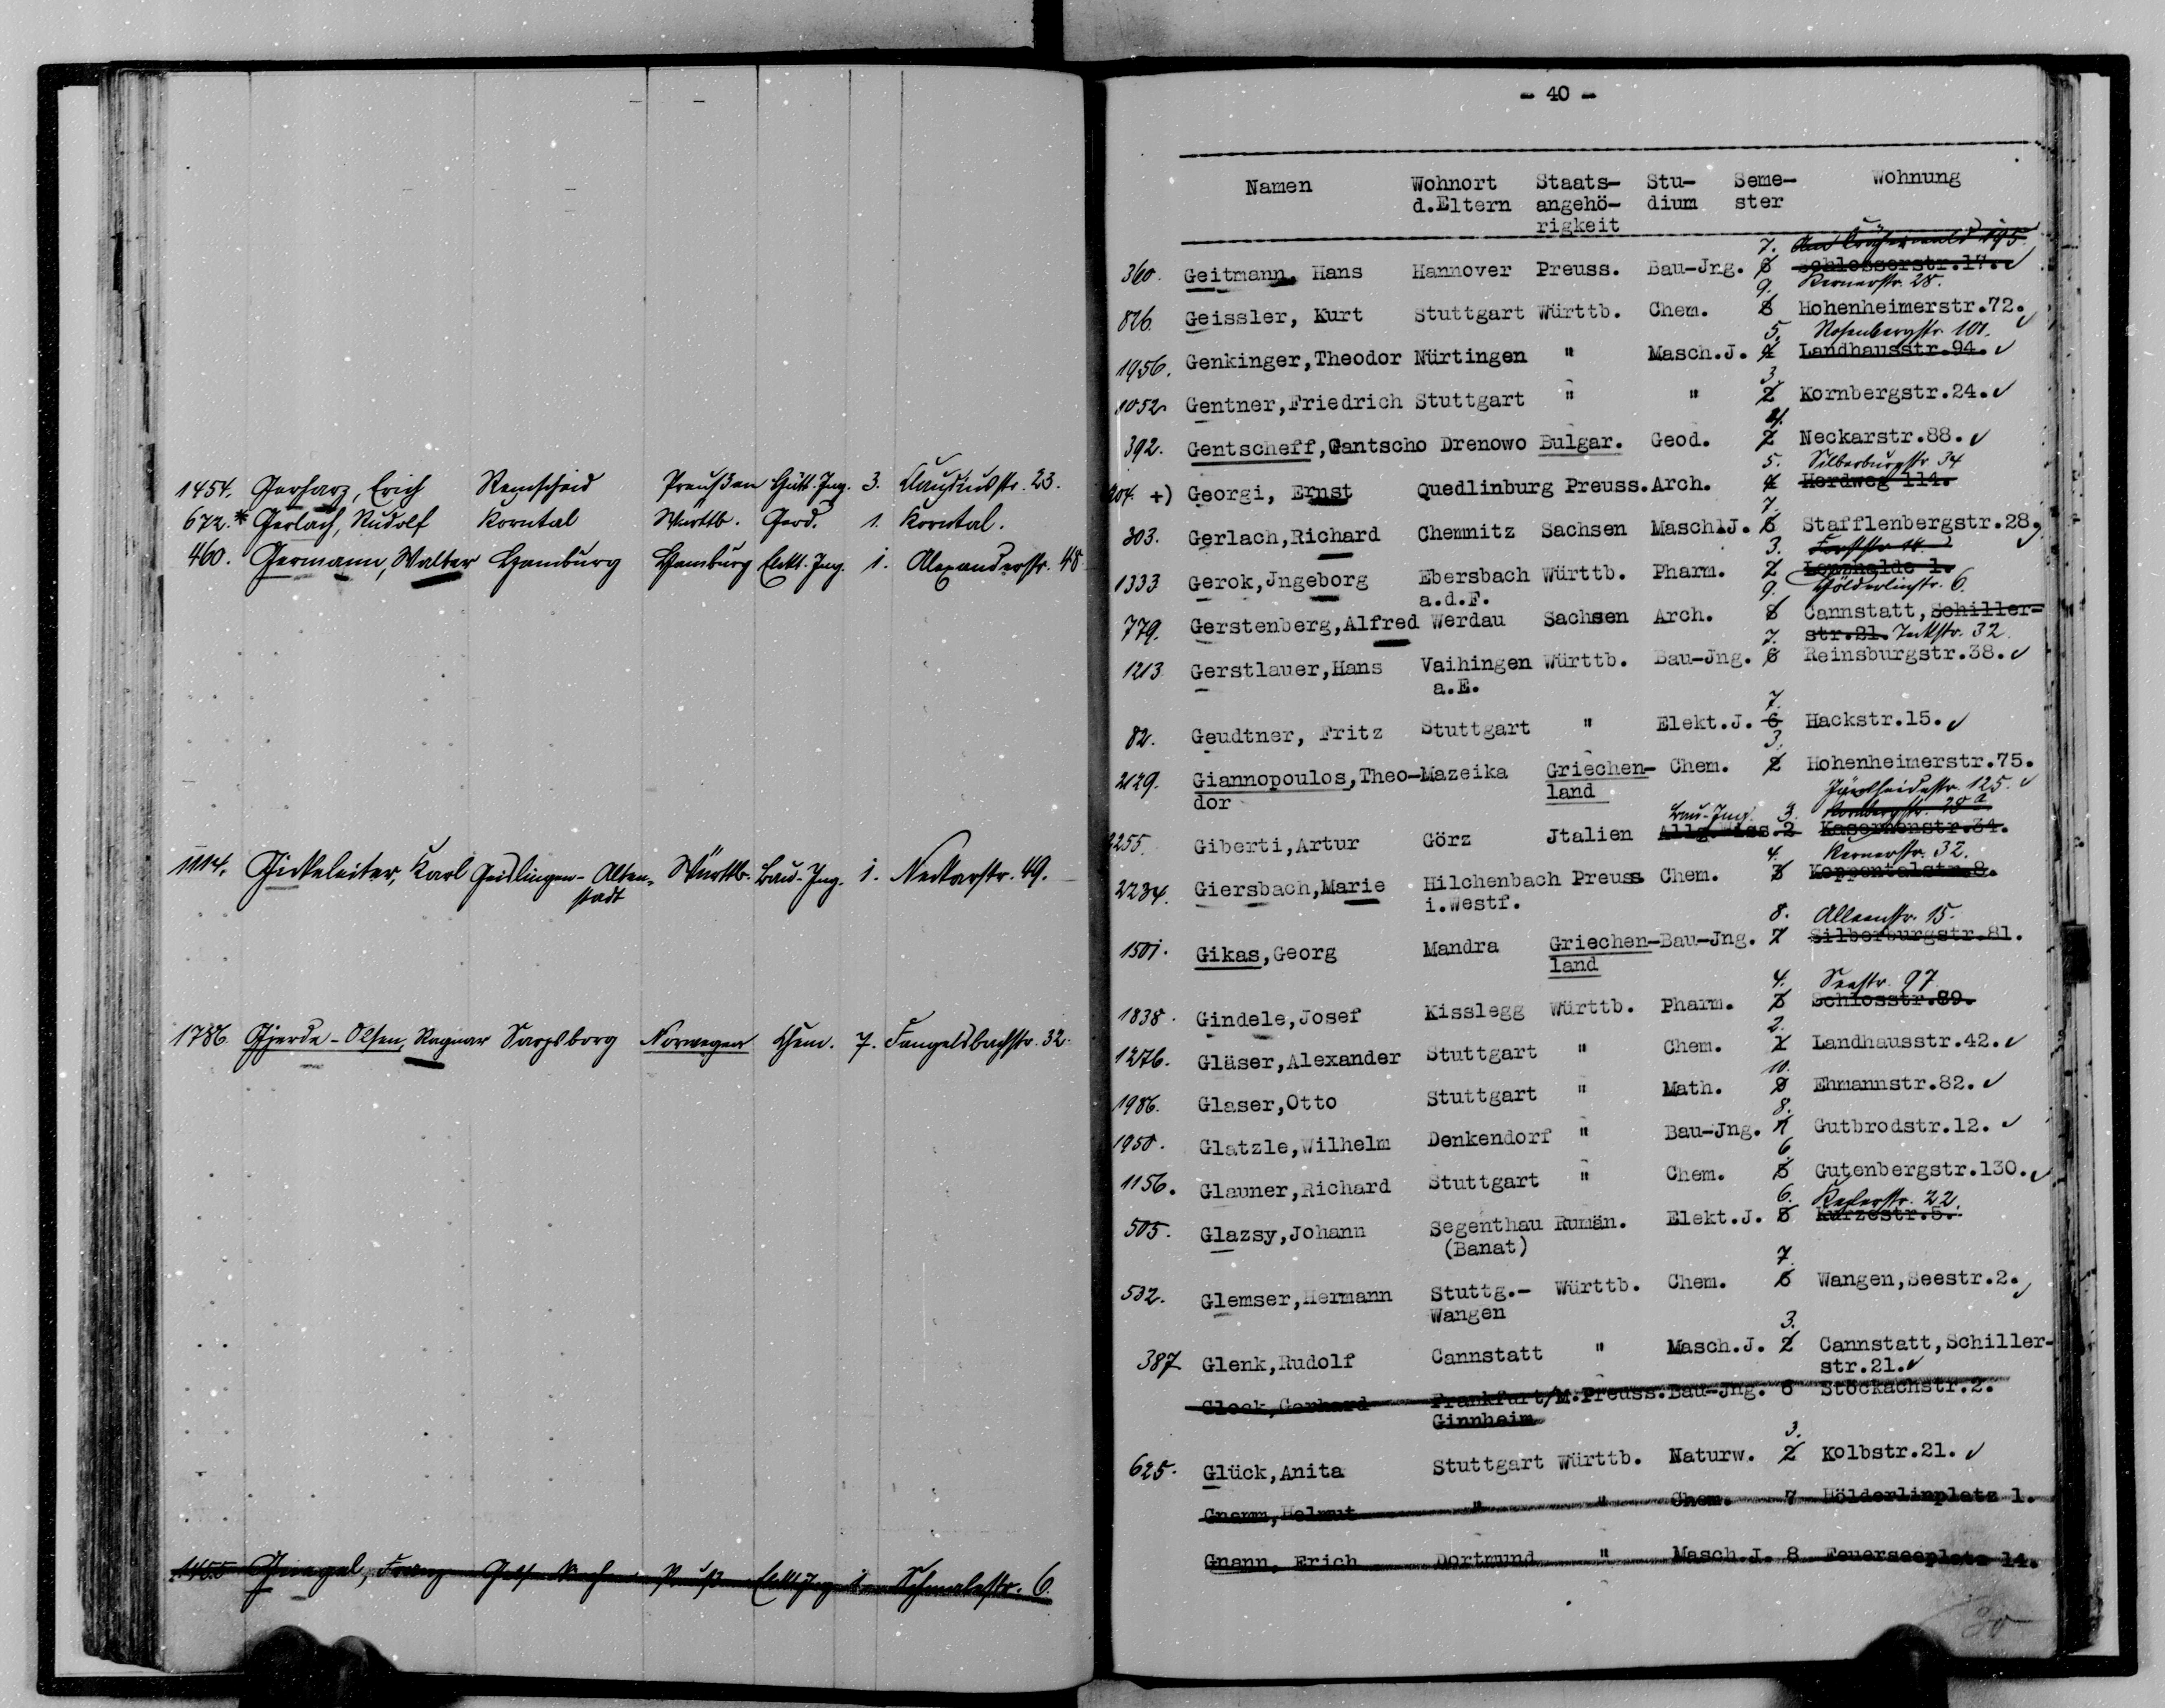 1454. Gerharz, Erich Remscheid Preußen Hütt. Ing. 3. Claudiusstr. 23.
672. * Gerlach, Rudolf Korntal Württb. Geod. 1. Korntal.
460. Germann, Walter Hamburg Hamburg Elekt. Ing. 1. Alexanderstr. 48
1114. Gickeleiter, Karl Geislingen-Alten- Württb. Bau-Ing. 1. Neckarstr. 49.
stadt
1786. Gjerde-Olsen, Ragnar Sarpsborg Norwegen Chem. 7. Fangelsbachstr. 32.
1455 Franz Elekt. Ing. 1. 6.
- 40 -
Namen Wohnort Staats- Stu- Seme- Wohnung
d.Eltern angehö- dium ster
rigkeit
7. Am Kräherwald 195.
360. Geitmann, Hans Hannover Preuss. Bau-Jng. 6 Schlosserstr.17.
9. Kernerstr. 28.
826. Geissler, Kurt Stuttgart Württb. Chem. 8 Hohenheimerstr.72.
5. Rosenbergstr. 101.
1956. Genkinger,Theodor Nürtingen " Masch.J. 4 Landhausstr.94.
3.
1052. Gentner,Friedrich Stuttgart " " 2 Kornbergstr.24.
392. Gentscheff,Gantscho Drenowo Bulgar. Geod. 7 Neckarstr.88.
5. Silberburgstr. 34
204. +) Georgi, Ernst Quedlinburg Preuss. Arch. 4 Herdweg 114.
7.
303. Gerlach,Richard Chemnitz Sachsen MaschlJ. 6 Stafflenbergstr.28.
3. Forststr.
1333 Gerok,Jngeborg Ebersbach Württb. Pharm. 2 Lenzhalde 1.
a.d.F. 9. Hölderlinstr. 6.
779. Gerstenberg,Alfred Werdau Sachsen Arch. 8 Cannstatt,Schiller-
7. str.21. Teckstr. 32.
1213 Gerstlauer,Hans Vaihingen Württb. Bau-Jng. 6 Reinsburgstr.38.
a.E.
7.
82. Geudtner, Fritz Stuttgart " Elekt.J. 6 Hackstr.15.
3.
2129. Giannopoulos,Theo- Mazeika Griechen- Chem. 2 Hohenheimerstr.75.
dor land
125.
Bau-Ing. 3. Kornbergstr. 28 a
2255. Giberti,Artur Görz Jtalien Allg.Wiss.2 Kasernenstr.34.
4. Kernerstr. 32.
2234. Giersbach,Marie Hilchenbach Preuss Chem. 3 Koppentalstr.8.
i.Westf.
8. Alleenstr. 15.
1501. Gikas,Georg Mandra Griechen- Bau-Jng. 7 Silberburgstr.81.
land
4. Seestr. 97
1838. Gindele,Josef Kisslegg Württb. Pharm. 3 Schlosstr.89.
2.
1276. Gläser,Alexander Stuttgart " Chem. 1 Landhausstr.42.
10.
1986. Glaser,Otto Stuttgart " Math. 9 Ehmannstr.82.
8.
1950. Glatzle,Wilhelm Denkendorf " Bau-Jng. 7 Gutbrodstr.12.
6.
1156. Glauner,Richard Stuttgart " Chem. 5 Gutenbergstr.130.
6. 22.
505. Glazsy,Johann Segenthau Rumän. Elekt.J. 5 Kurzestr.5.
(Banat)
7.
532. Glemser,Hermann Stuttg.- Württb. Chem. 6 Wangen,Seestr.2.
Wangen
3.
387 Glenk,Rudolf Cannstatt " Masch.J. 2 Cannstatt,Schiller-
str.21.
Glock,Gerhard Frankfurt/M. Preuss. Bau-Jng. 6 Stöckachstr.2.
Ginnheim
3.
625. Glück,Anita Stuttgart Württb. Naturw. 2 Kolbstr.21.
Gnamm,Helmut " " Chem. 7 Hölderlinplatz 1.
Gnann, Erich Dortmund " Masch.J. 8 Feuerseeplatz 14.